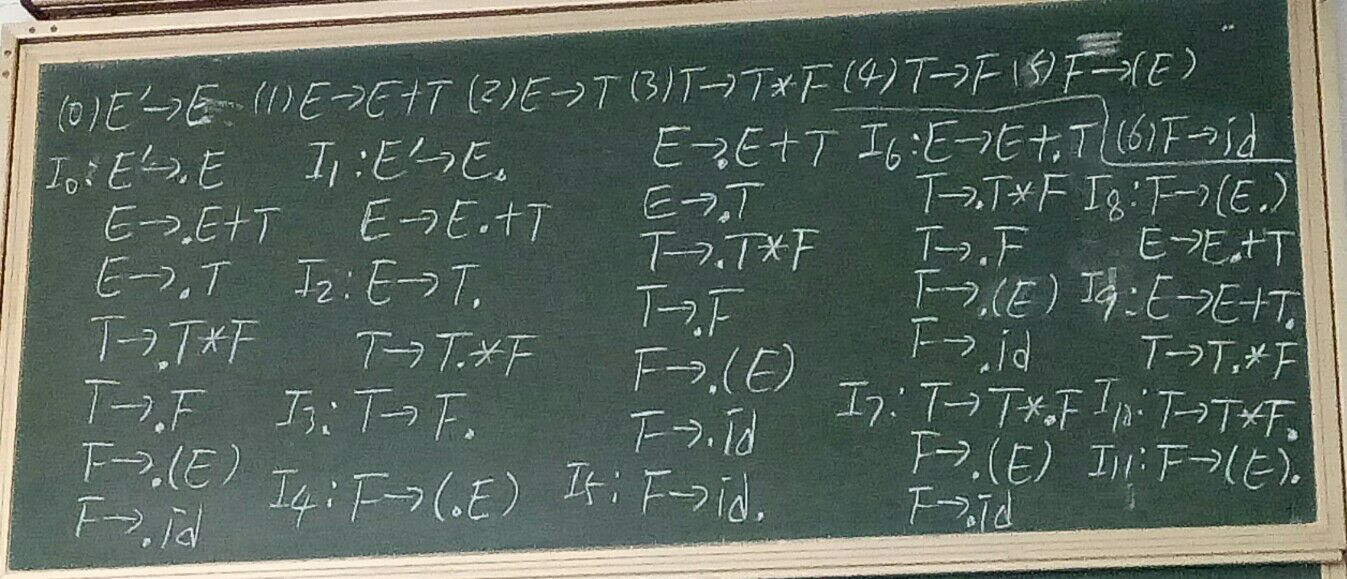 (0)E'→E (1)E→E+T (2)E→T (3)T→T*F (4)T→F (5)F→(E)
(6)F→id
I₀:E'→.E
E→.E+T
E→.T
T→.T*F
T→.F
F→.(E)
F→.id
I₁:E'→E.
E→E.+T
I₂:E→T.
T→T.*F
I₃:T→F.
I₄:F→(.E)
E→.E+T
E→.T
T→.T*F
T→.F
F→.(E)
F→.id
I₅:F→id.
I₆:E→E+.T
T→.T*F
T→.F
F→.(E)
F→.id
I₇:T→T*.F
F→.(E)
F→.id
I₈:F→(E.)
E→E.+T
I₉:E→E+T.
T→T.*F
I₁₀:T→T*F.
I₁₁:F→(E).